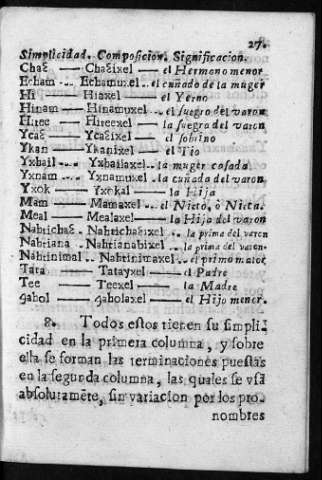 27.
Simplicidad. Composicion. Significacion.
Chaꜫ — Chaꜫixel — el Hermano menor
Echam -.. Echamuxel .. el cuñado de la muger
Hi — Hiaxel — el Yerno
Hinam --.. Hinamuxel .. el suegro del varon
Hitee — Hiteexel — la suegra del varon
Ycaꜫ — Ycaꜫixel — el sobrino
Ykan — Ykanixel — el Tio
Yxhail -.. Yxhailaxel .. la muger casada
Yxnam -.. Yxnamuxel .. la cuñada del varon
Yxok — Yxokal — la Hija
Mam — Mamaxel .. el Nieto, ò Nieta.
Meal — Mealaxel — la Hija del varon
Nabꜫichaꜫ .. Nabꜫichaꜫixel .. la prima del varon
Nabꜫiana .. Nabꜫianabixel .. la prima del varon.
Nabꜫinimal .. Nabꜫinimaxel .. el primo maior
Tata — Tatayxel — el Padre
Tee — Teexel — la Madre
ꜫahol — ꜫaholaxel — el Hijo menor.
8. Todos estos tienen su simpli-
cidad en la primera columna, y sobre
ella se forman las terminaciones puestas
en la segunda columna, las quales se vsã
absolutamẽte, sin variacion por los pro-
nombres